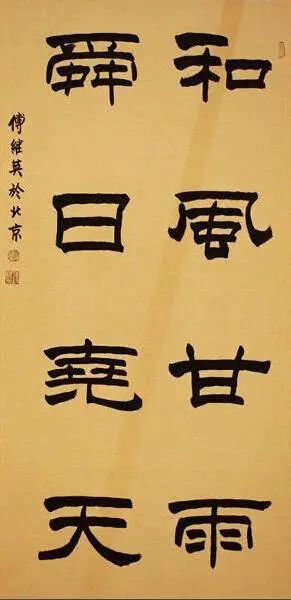 和風甘雨
舜日堯天
傅继英於北京